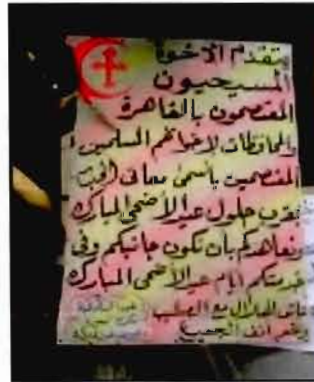 يتقدم الاخوة
المسيحيون
المعتصمون بالقاهرة
والمحافظات لاخوانهم المسلمين
المعتصمين بأسمى معانى الحب
بقرب حلول عيد الأضحى المبارك
ونعاهدكم بان نكون جانبكم وفى
خدمتكم ايام عيد الأضحى المبارك
الهلال مع الصليب